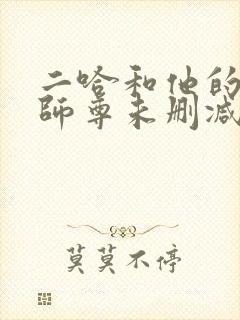 二哈和他的
师尊未删减
莫莫不停